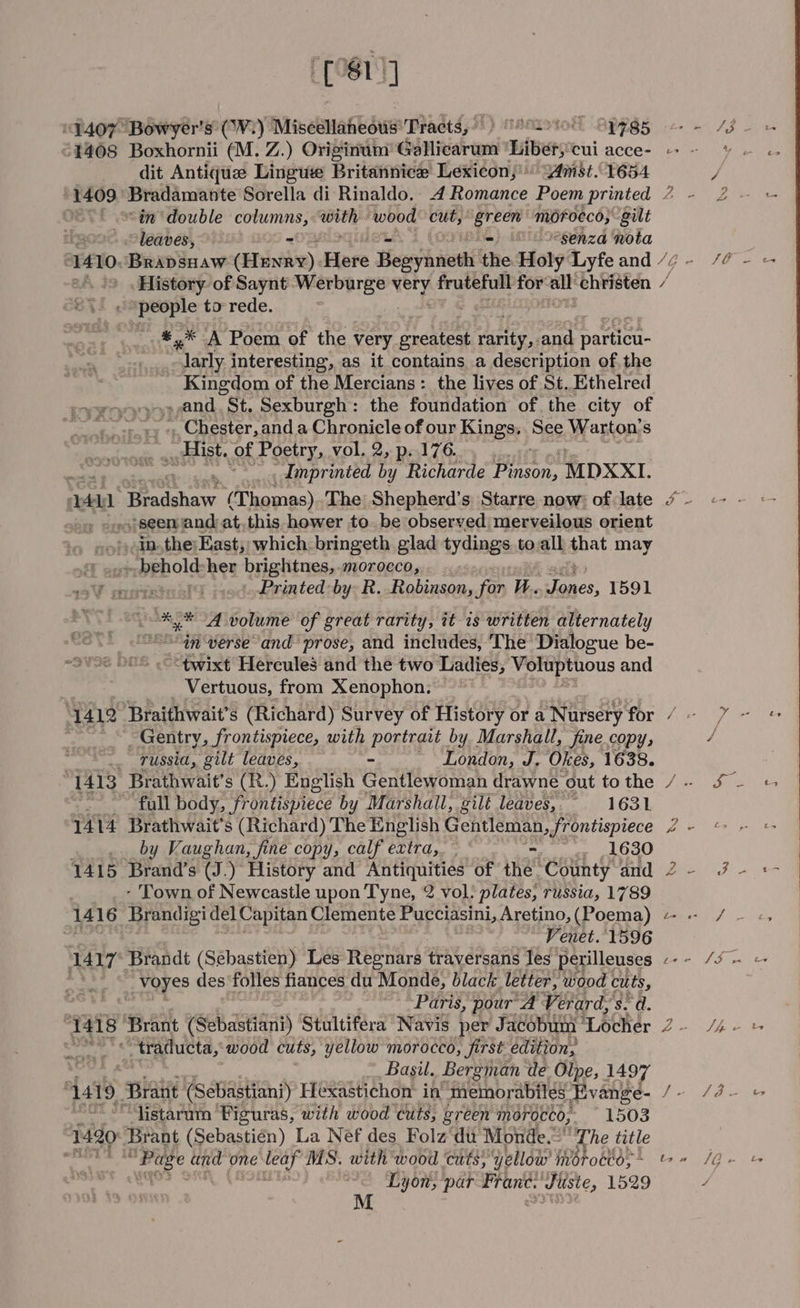 [ 81 ]
1407 Bowyer's (W.) Miscellaneous Tracts, 1785 - - 13 -
1408 Boxhornii (M. Z.) Originum Gallicarum Liber, cui acce-
dit Antiquæ Linguæ Britannicæ Lexicon, Amst. 1654
1409 Bradamante Sorella di Rinaldo. A Romance Poem printed 2 - 2 -
in double columns, with wood cut, green morocco, gilt
leaves, - - - senza nota
1410 Bradshaw (Henry) Here Begynneth the Holy Lyfe and
History of Saynt Werburge very frutefull for all christen
people to rede.
*** A Poem of the very greatest rarity, and particu-
larly interesting, as it contains a description of the
Kingdom of the Mercians: the lives of St. Ethelred
and St. Sexburgh: the foundation of the city of
Chester, and a Chronicle of our Kings. See Warton's
Hist. of Poetry, vol. 2, p. 176.
Imprinted by Richarde Pinson, MDXXI.
1411 Bradshaw (Thomas) The Shepherd's Starre now of late
seen and at this hower to be observed merveilous orient
in the East, which bringeth glad tydings to all that may
behold her brightnes, morocco,
Printed by R. Robinson, for W. Jones, 1591
*** A volume of great rarity, it is written alternately
in verse and prose, and includes, The Dialogue be-
twixt Hercules and the two Ladies, Voluptuous and
Vertuous, from Xenophon.
1412 Braithwait's (Richard) Survey of History or a Nursery for / - 7 -
Gentry, frontispiece, with portrait by Marshall, fine copy,
russia, gilt leaves, - London, J. Okes, 1638.
1413 Brathwait's (R.) English Gentlewoman drawne out to the / - 5 -
full body, frontispiece by Marshall, gilt leaves, 1631
1414 Brathwait's (Richard) The English Gentleman, frontispiece 2 -
by Vaughan, fine copy, calf extra, - 1630
1415 Brand's (J.) History and Antiquities of the County and 2 - 3 -
Town of Newcastle upon Tyne, 2 vol. plates, russia, 1789
1416 Brandigi del Capitan Clemente Pucciasini, Aretino, (Poema) - - / -
Venet. 1596
1417 Brandt (Sebastien) Les Regnars traversans les perilleuses - - 15 -
voyes des folles fiances du Monde, black letter, wood cuts,
Paris, pour A Verard, s. d.
1418 Brant (Sebastiani) Stultifera Navis per Jacobum Locher 2 - 14 -
traducta, wood cuts, yellow morocco, first edition,
Basil. Bergman de Olpe, 1497
1419 Brant (Sebastiani) Hexastichon in memorabiles Evange- / - 13 -
listarum Figuras, with wood cuts, green morocco, 1503
1420 Brant (Sebastién) La Nef des Folz du Monde. The title
Page and one leaf MS. with wood cuts, yellow morocco,
Lyon, par Franc. Juste, 1529
M